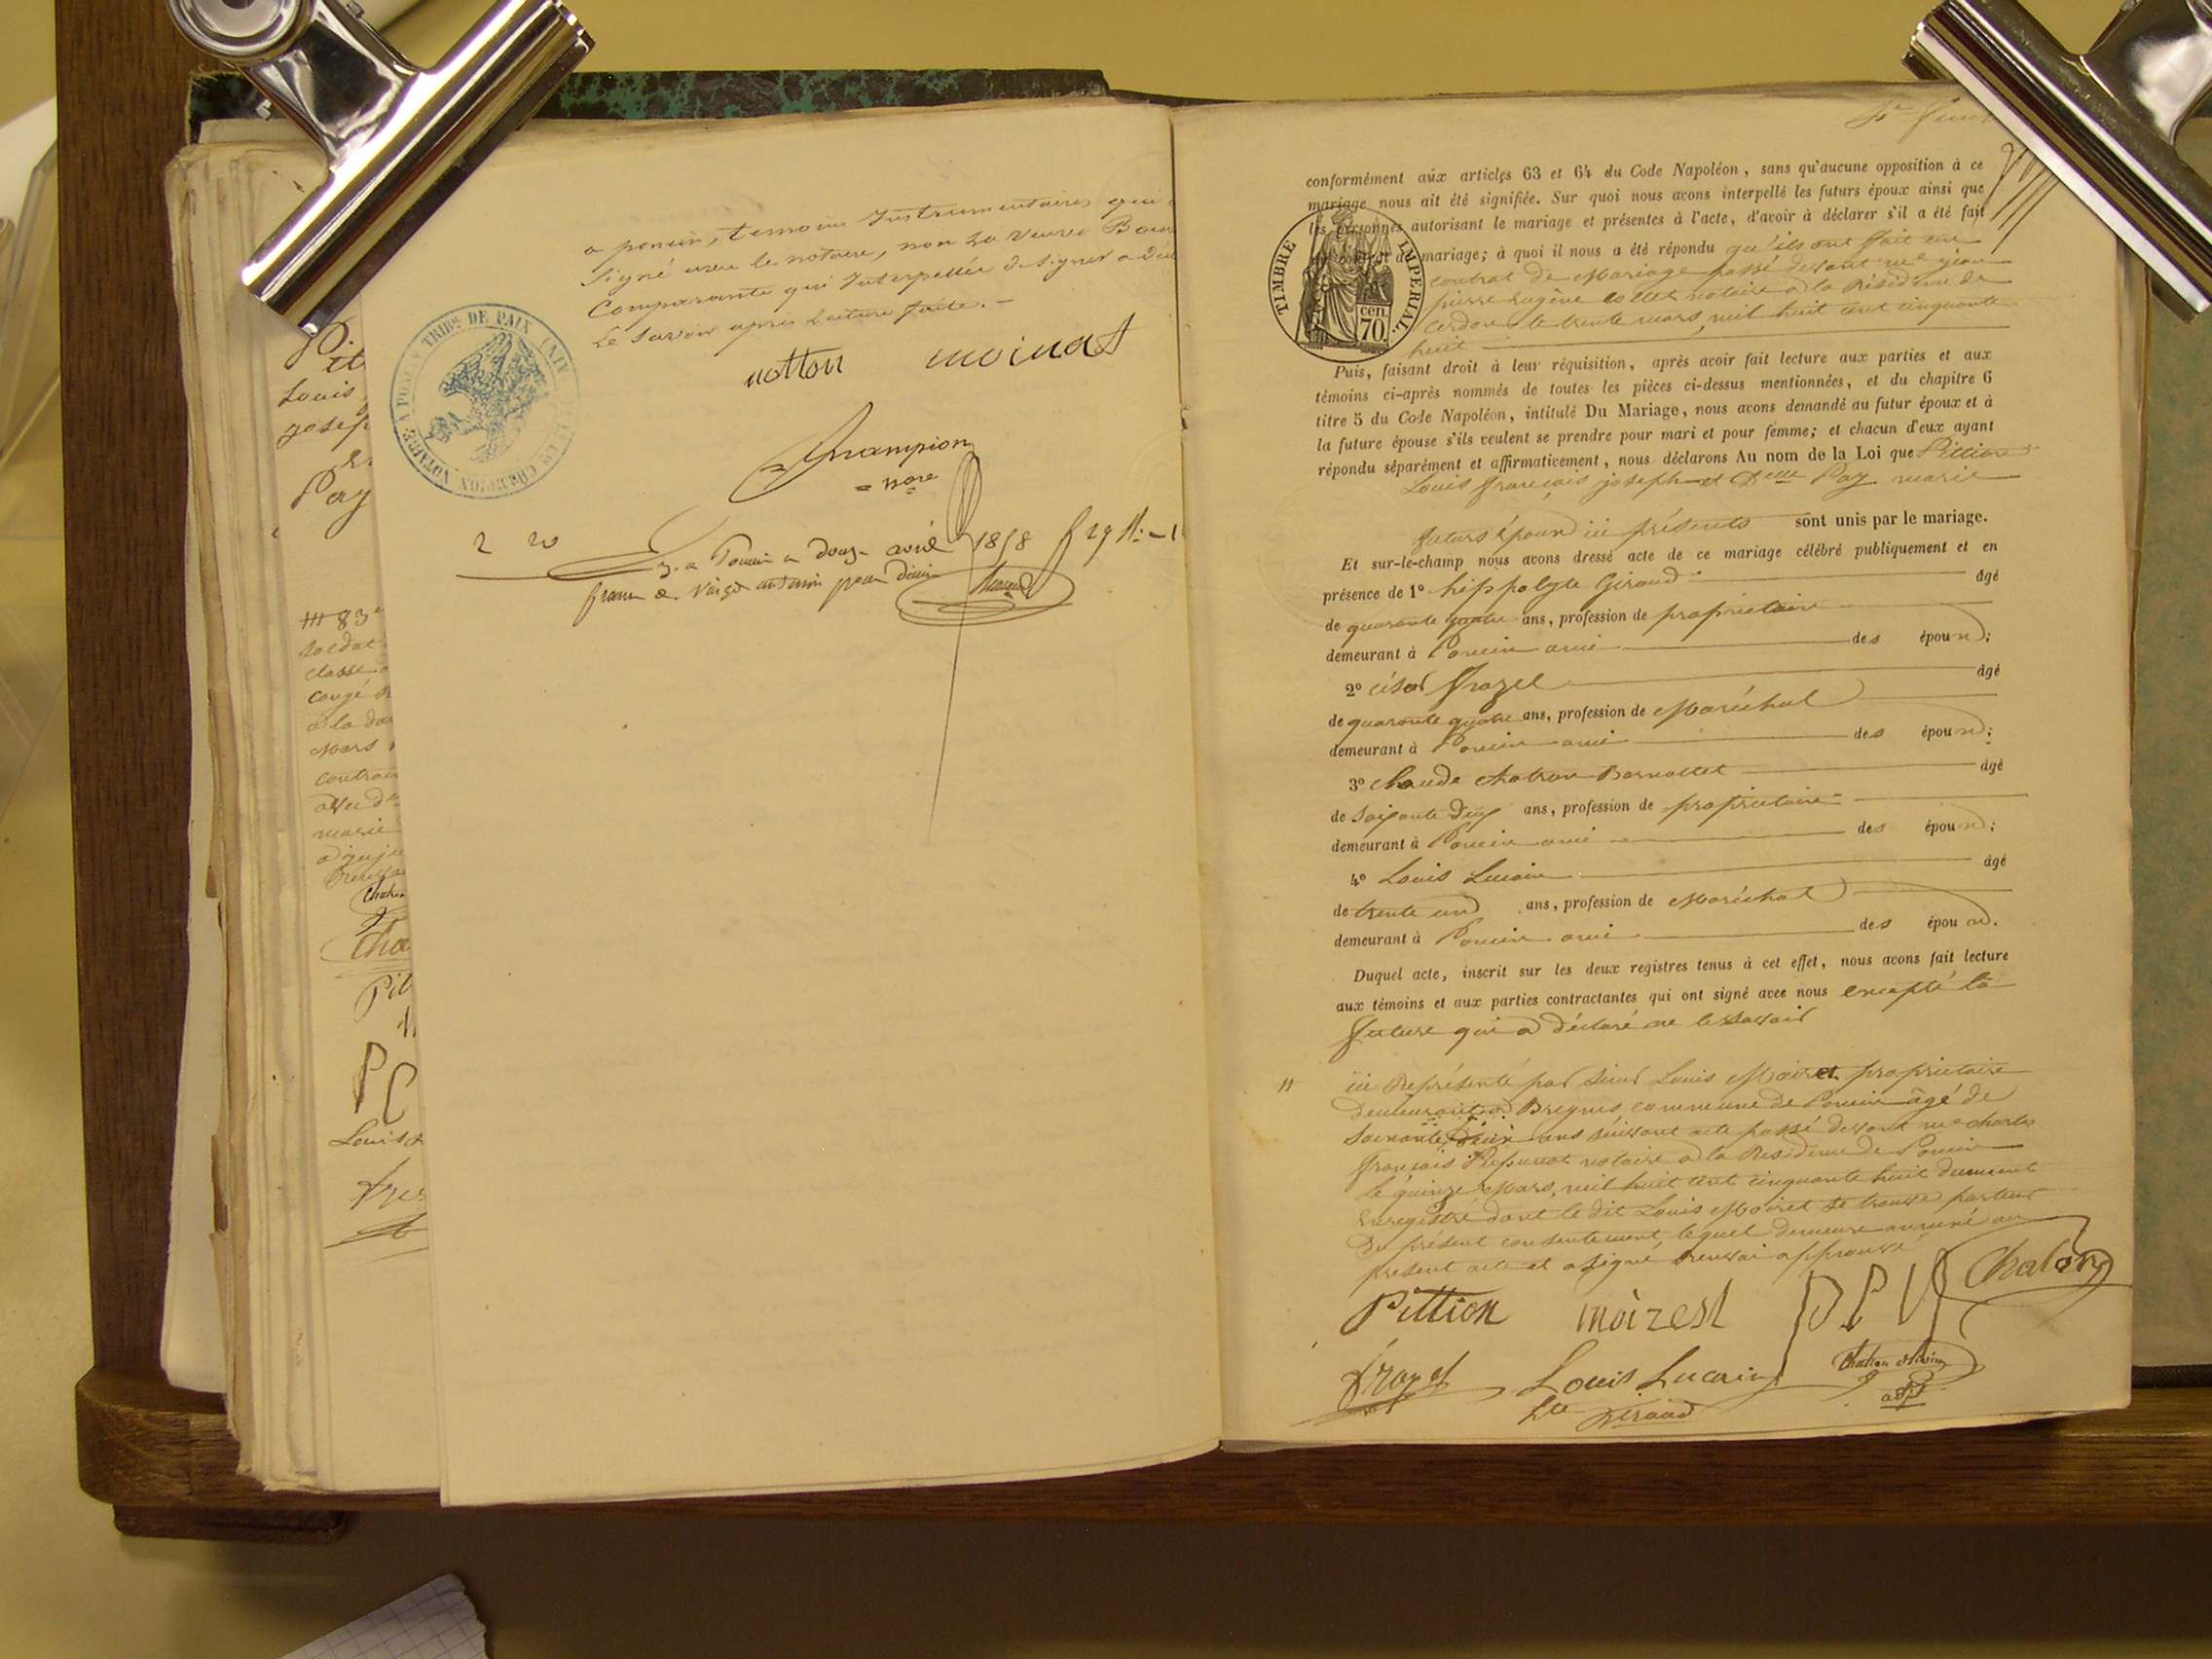 a poncin, temoins Instrumentaires qui
signé avec le notaire, non la veuve
Comparante qui Interpellée de signer a
le savoir après lecture faite. -
TRIB. DE PAIX
NOTAIRE A PONCIN
notton moinat
Champion
= nore
a Poncin douze avril 1858
Louis
joseph
Pay
83
soldat
classe
congé
à la
Mars
marie
Cha
Pit
Louis
conformément aux articles 63 et 64 du Code Napoléon, sans qu'aucune opposition à ce
mariage nous ait été signifiée. Sur quoi nous avons interpellé les futurs époux ainsi que
les personnes autorisant le mariage et présentes à l'acte, d'avoir à déclarer s'il a été fait
mariage; à quoi il nous a été répondu qu'ils ont fait un
contrat de Mariage passé devant me jean
pierre Eugène Collet notaire a la Résidence de
cerdon le trente mars, mil huit cent cinquante
huit
TIMBRE IMPERIAL.
70. cen.
Puis, faisant droit à leur réquisition, après avoir fait lecture aux parties et aux
témoins ci-après nommés de toutes les pièces ci-dessus mentionnées, et du chapitre 6
titre 5 du Code Napoléon, intitulé Du Mariage, nous avons demandé au futur époux et à
la future épouse s'ils veulent se prendre pour mari et pour femme; et chacun d'eux ayant
répondu séparément et affirmativement, nous déclarons Au nom de la Loi que Pittion
Louis françois joseph et Delle Pay marie
futurs époux ici présents sont unis par le mariage.
Et sur-le-champ nous avons dressé acte de ce mariage célébré publiquement et en
présence de 1º hippolyte Giraud âgé
de quarante quatre ans, profession de propriétaire
demeurant à Poncin ami des époux;
2º césar frazel âgé
de quarante quatre ans, profession de Maréchal
demeurant à Poncin ami des époux;
3º Claude chatron Barnollet âgé
de soixante dix ans, profession de propriétaire
demeurant à Poncin ami des époux;
4º Louis Lucain âgé
de trente un ans, profession de Maréchal
demeurant à Poncin ami des époux.
Duquel acte, inscrit sur les deux registres tenus à cet effet, nous avons fait lecture
aux témoins et aux parties contractantes qui ont signé avec nous excepté la
future qui a déclaré ne le savoir
ici Représenté par sieur Louis Moiret propriétaire
demeurant a Bregnes, commune de Poncin âgé de
soixante ans suivant acte passé devant me charles
françois notaire a la Résidence de Poncin
le quinze Mars, mil huit cent cinquante huit dument
enregistré dont le dit Louis Moiret se trouve porteur
du présent consentement, lequel demeure annexé au
présent acte et a signé, renvoi approuvé
Pittion moirest P P Chalon
frazel Louis Lucain
hte Giraud adjt